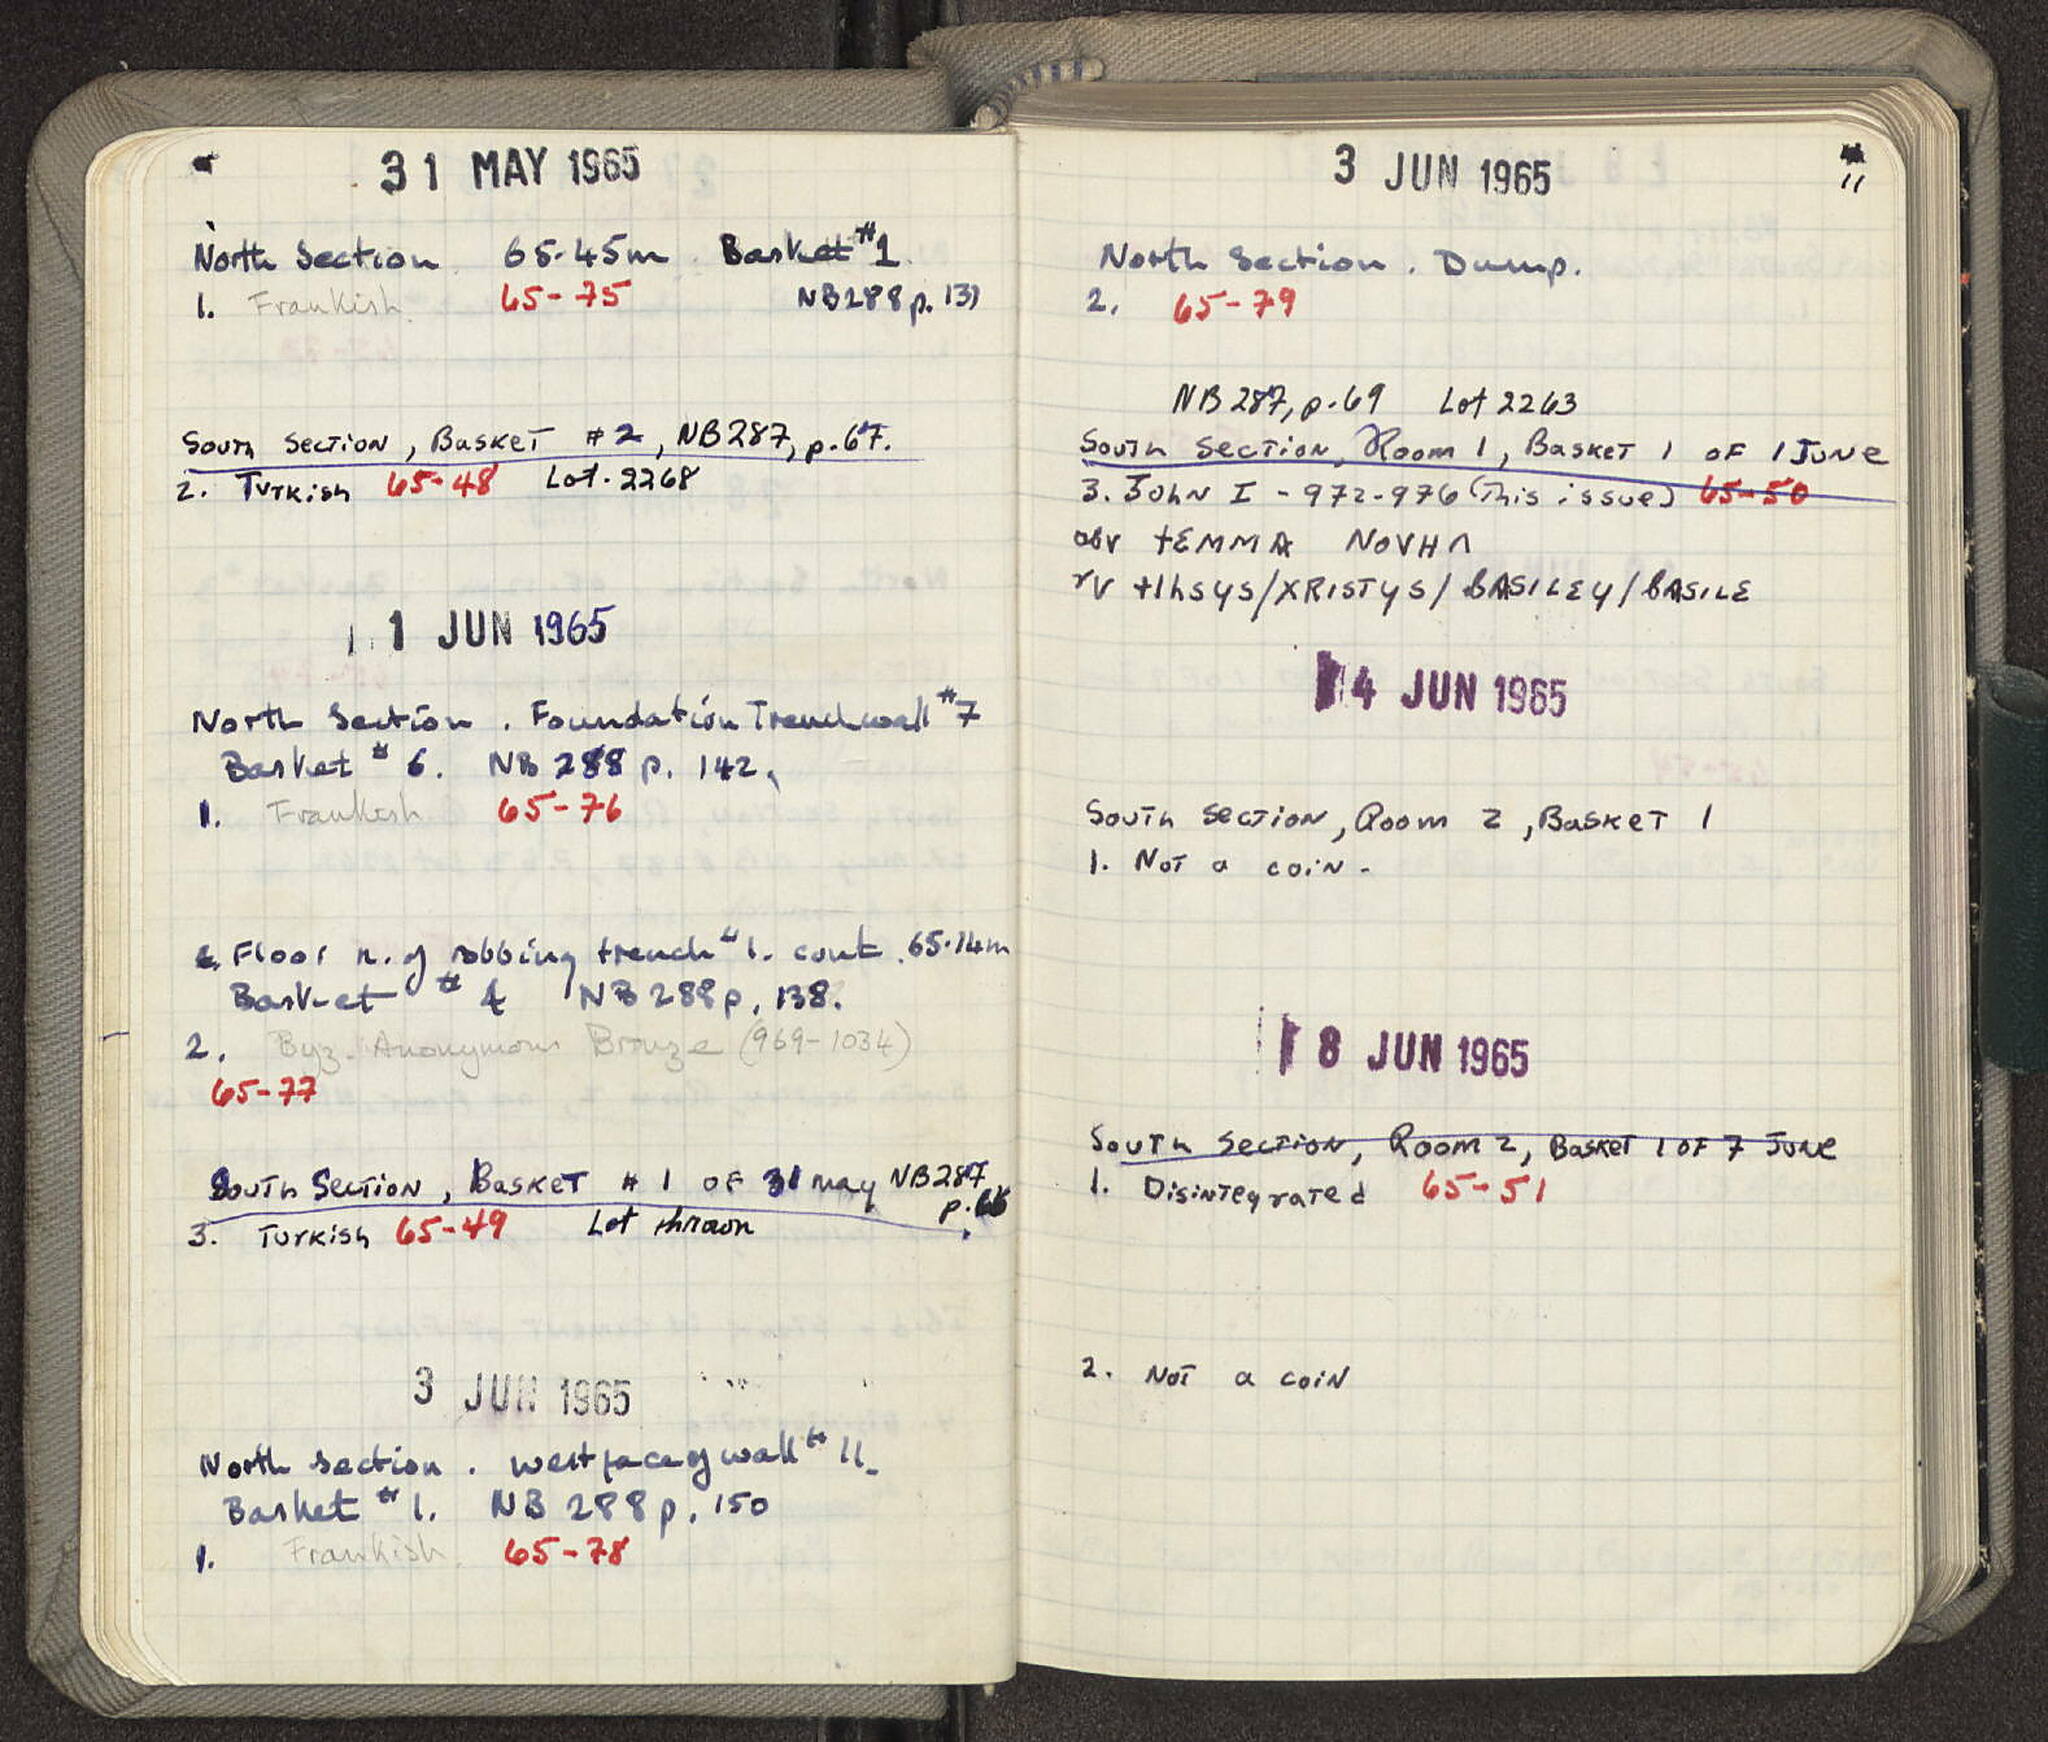 31 MAY 1965
North Section 65.45m. Basket #1.
1. Frankish 65-75 NB288 p. 131
South Section, Basket #2, NB287, p.67.
2. Turkish 65-48 Lot. 2268
1 JUN 1965
North Section. Foundation Trench wall #7
Basket #6. NB 288 p. 142.
1. Frankish 65-76
Floor n. of robbing trench #1. cont. 65.14m
Basket #4 NB 288 p. 138.
2. Byz. Anonymous Bronze (969-1034)
65-77
South Section, Basket #1 of 31 May NB287
p.66
3. Turkish 65-49 Lot thrown
3 JUN 1965
North Section. West face of wall #11.
Basket #1. NB 288 p. 150
1. Frankish 65-78
3 JUN 1965
11
North Section. Dump.
2. 65-79
NB 287, p.69 Lot 2263
South Section, Room 1, Basket 1 of 1 June
3. John I - 972-976 (This issue) 65-50
obv +EMMA NOVHΛ
rv +IhSYS/XRISTYS/BASILEY/BASILE
4 JUN 1965
South Section, Room 2, Basket 1
1. Not a coin.
8 JUN 1965
South Section, Room 2, Basket 1 of 7 June
1. Disintegrated 65-51
2. Not a coin